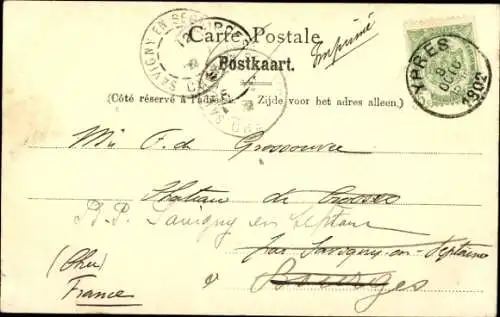 Carte Postale.
Imprimé
Postkaart.
(Côté réservé à l'adresse. Zijde voor het adres alleen.)
YPRES
1902
SAVIGNY EN SEPT
F. de Grossouvre
Chateau de
B.P. Savigny en Septaine
par Savigny-en-Septaine
à Bourges
(Cher)
France